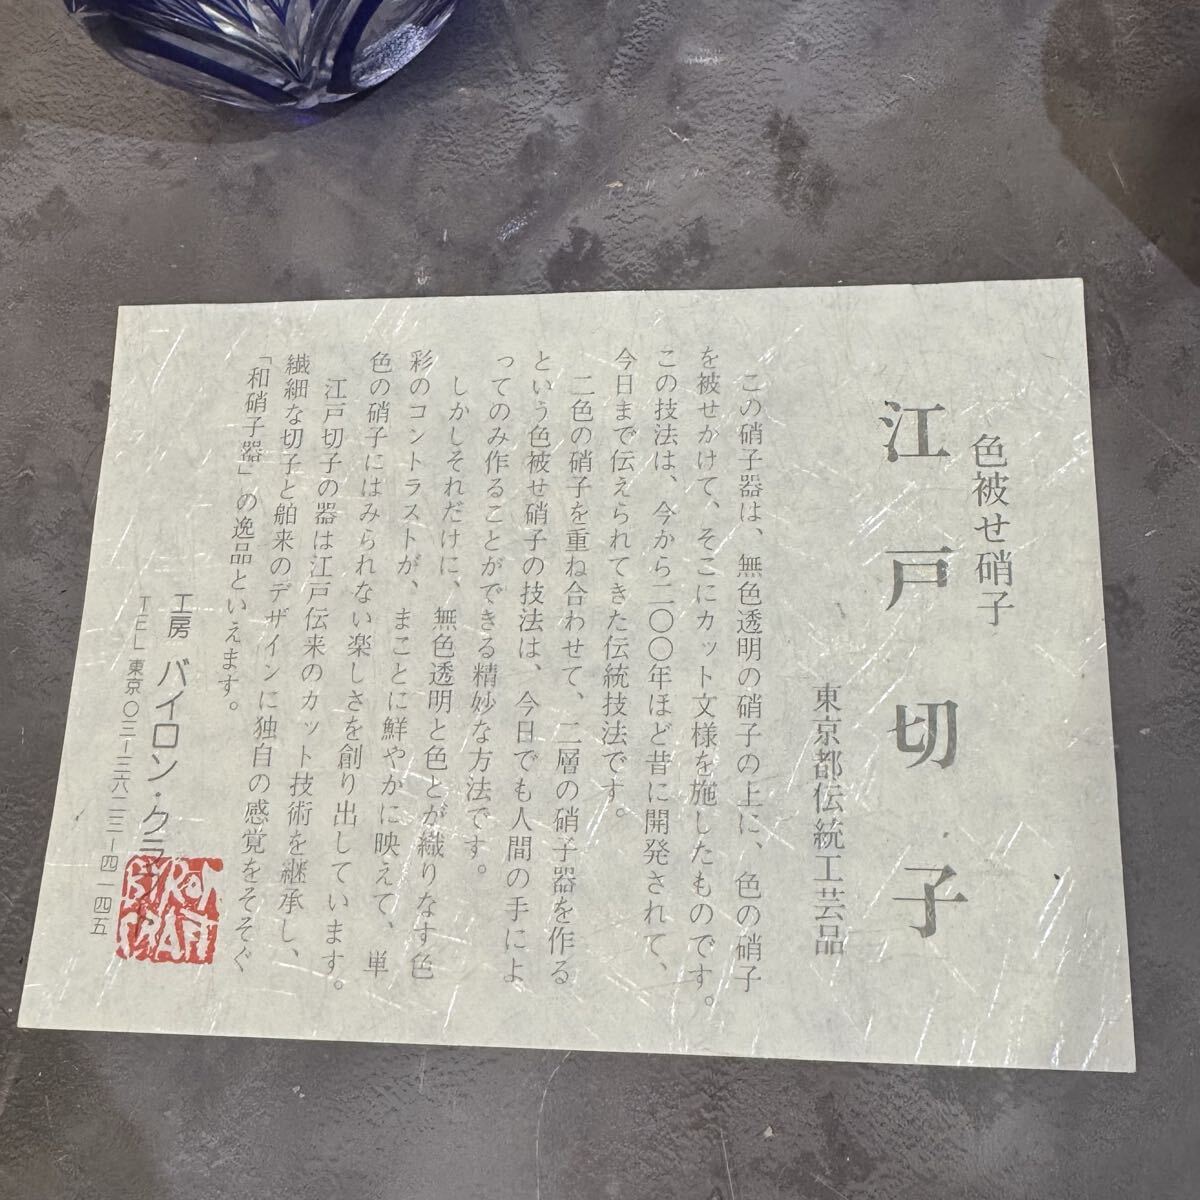 色被せ硝子
江戸切子
東京都伝統工芸品
この硝子器は、無色透明の硝子の上に、色の硝子
を被せかけて、そこにカット文様を施したものです。
この技法は、今から二〇〇年ほど昔に開発されて、
今日まで伝えられてきた伝統技法です。
二色の硝子を重ね合わせて、二層の硝子器を作る
という色被せ硝子の技法は、今日でも人間の手によ
ってのみ作ることができる精妙な方法です。
しかしそれだけに、無色透明と色とが織りなす色
彩のコントラストが、まことに鮮やかに映えて、単
色の硝子にはみられない楽しさを創り出しています。
江戸切子の器は江戸伝来のカット技術を継承し、
繊細な切子と舶来のデザインに独自の感覚をそそぐ
「和硝子器」の逸品といえます。
工房 バイロン・クラフト
TEL 東京〇三ー三六二二ー四一四五
BYRON
CRAFT